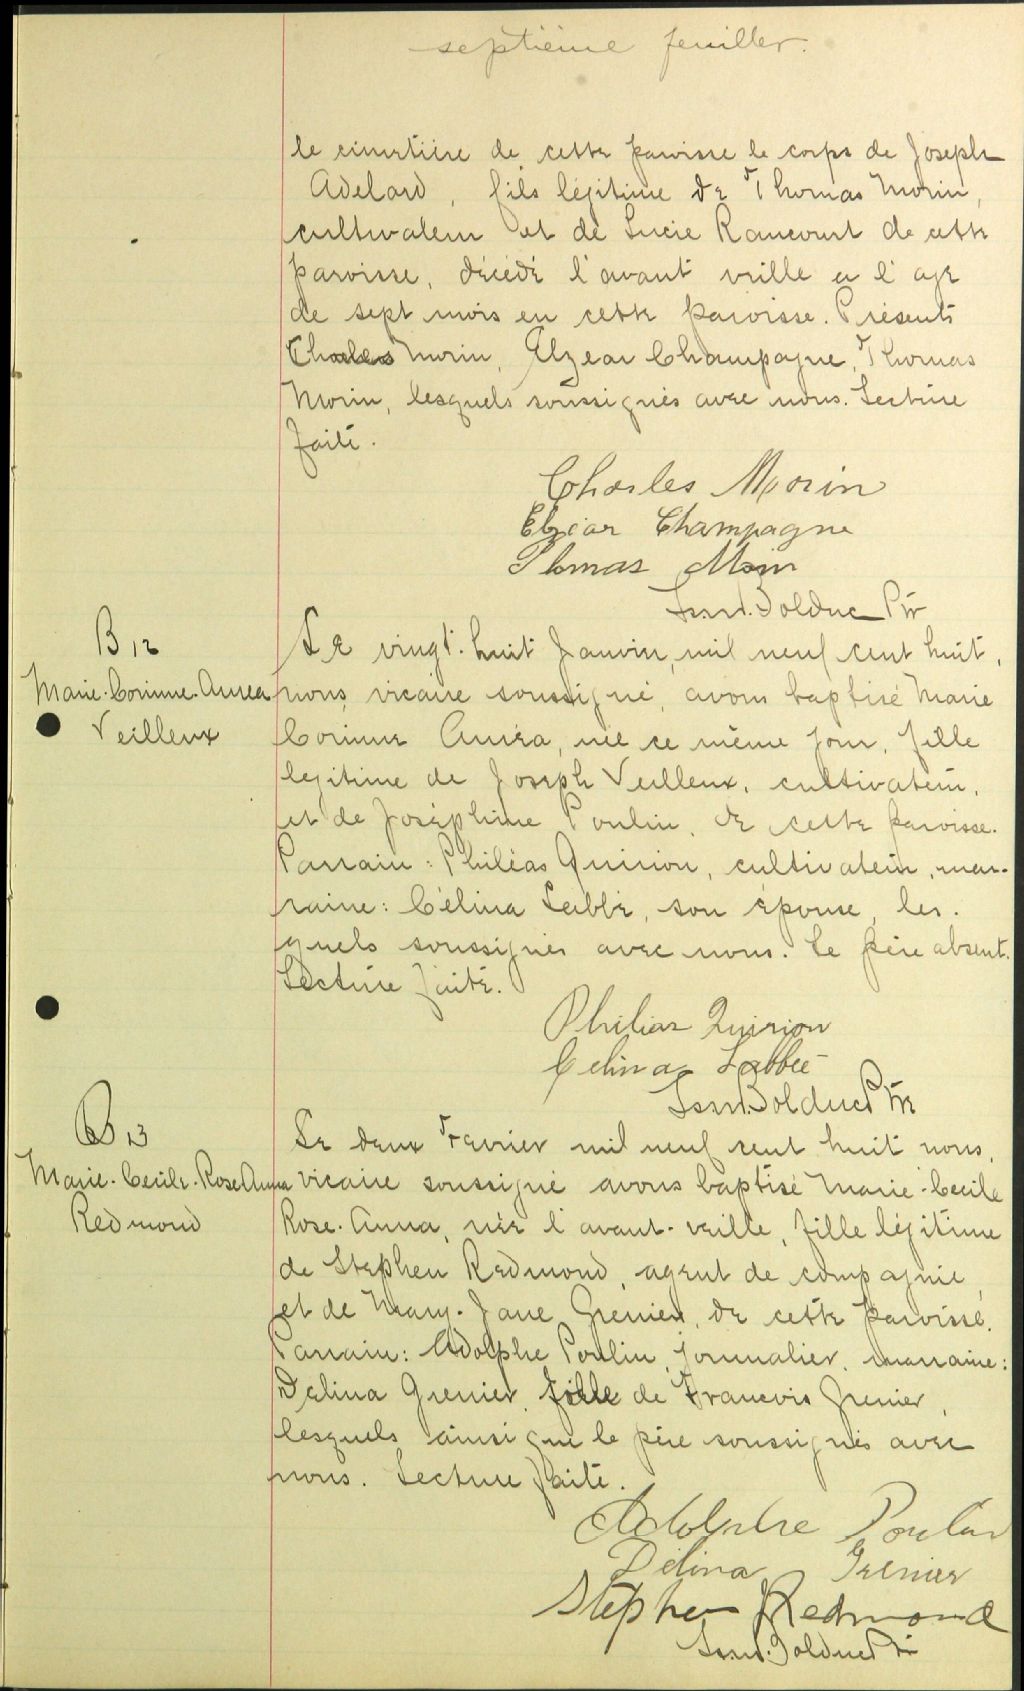 septième feuillet.
le cimetière de cette paroisse le corps de Joseph
Adelard, fils légitime de Thomas Morin,
cultivateur et de Lucie Rancourt de cette
paroisse, décédé l'avant veille a l'age
de sept mois en cette paroisse. Présents
Charles Morin, Elzear Champagne, Thomas
Morin, lesquels soussignés avec nous. Lecture
faite.
Charles Morin
Elzéar Champagne
Thomas Morin
Bolduc Ptr
B 12
Marie-Corinne-Aurea
Veilleux
Le vingt-huit Janvier, mil neuf cent huit,
nous, vicaire soussigné, avons baptisé Marie
Corinne Auréa, née ce même jour, fille
legitime de Joseph Veilleux, cultivateur,
et de Joséphine Poulin, de cette paroisse.
Parrain: Philéas Quirion, cultivateur, mar-
raine: Célina Labbé, son épouse, les-
quels soussignés avec nous. Le père absent.
Lecture faite.
Philias Quirion
Celina Labbée
Bolduc Ptr
B 13
Marie-Cecile-Rose Anna
Redmond
Le deux Fevrier mil neuf cent huit nous,
vicaire soussigné avons baptisé Marie-Cecile
Rose-Anna, née l'avant-veille, fille légitime
de Stephen Redmond, agent de compagnie,
et de Mary-Jane Grenier, de cette paroisse.
Parrain: Adolphe Poulin, journalier, marraine:
Delina Grenier, fille de Francois Grenier,
lesquels ainsi que le père soussignés avec
nous. Lecture faite.
Adolphe Poulin
Délina Grenier
Stephen Redmond
Bolduc Ptr